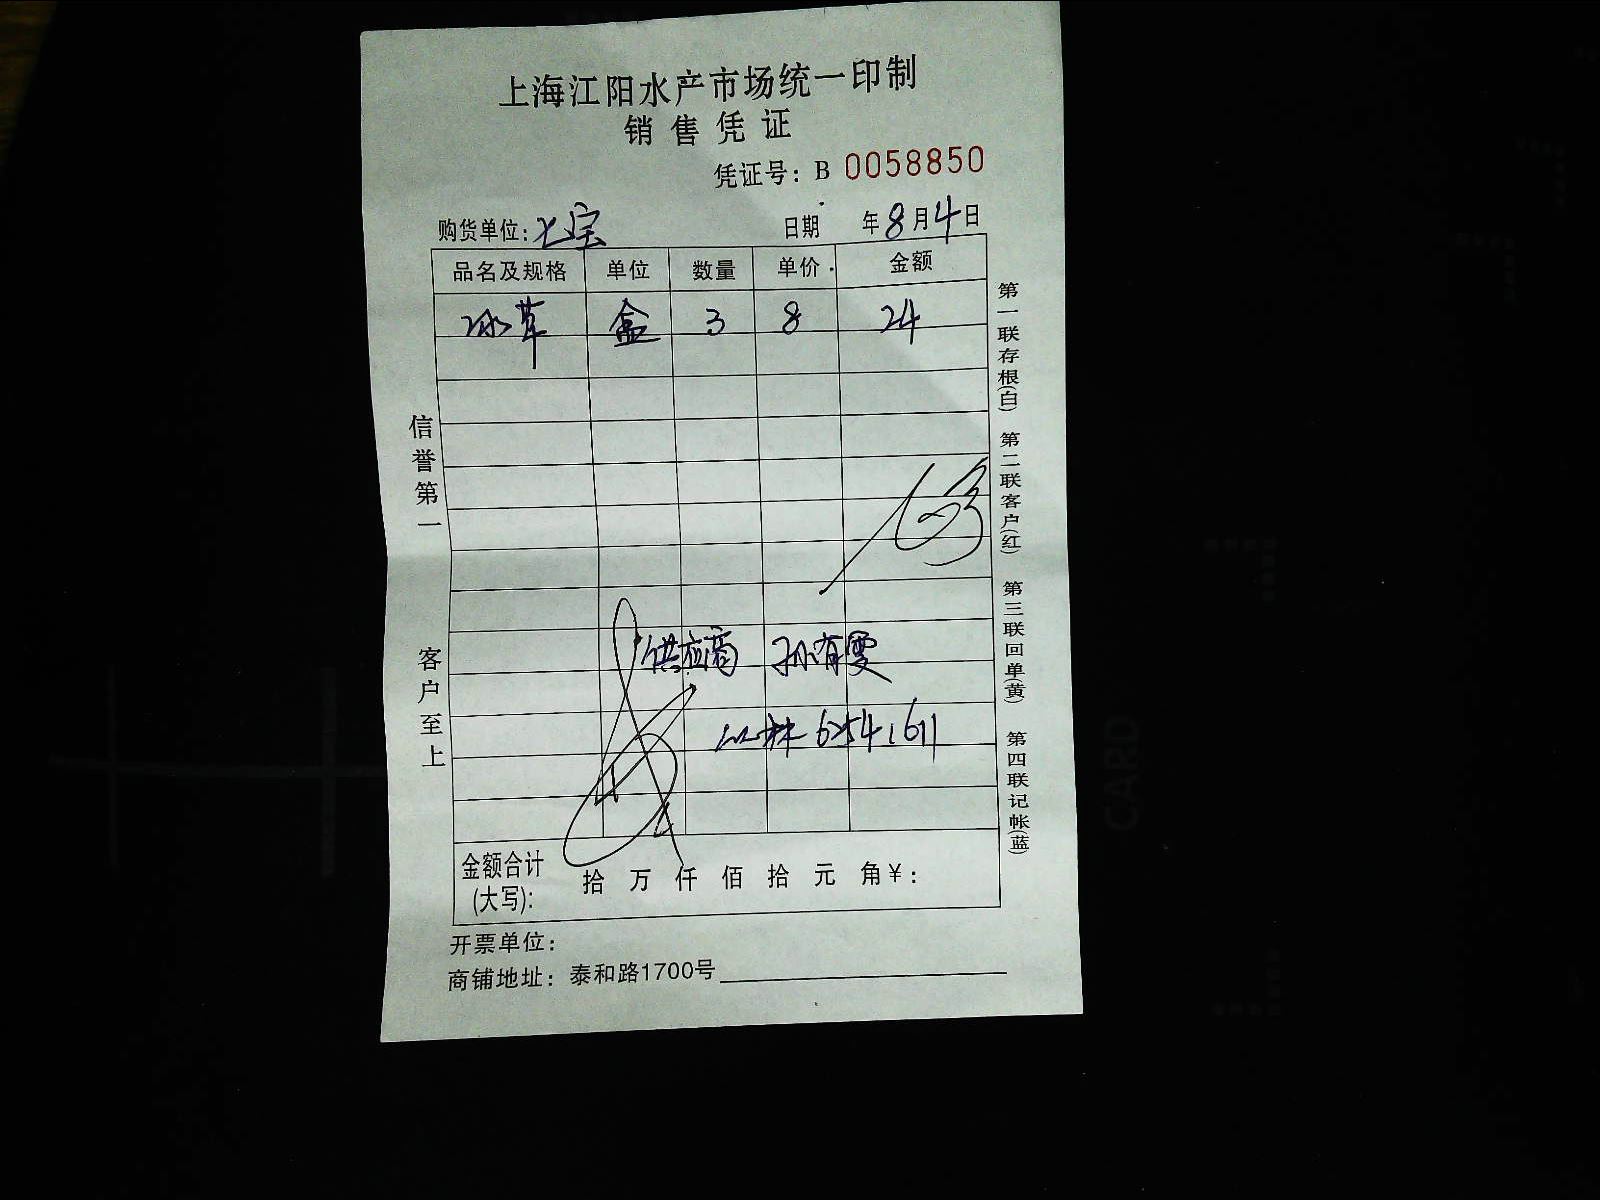 上海江阳水产市场统一印制
销售凭证
凭证号：B 0058850
购货单位：七宝 日期 年8月4日
品名及规格 单位 数量 单价 金额
冰草 盒 3 8 24
供应商 孙有雯
62541611
金额合计(大写)： 拾 万 仟 佰 拾 元 角￥：
开票单位：
商铺地址：泰和路1700号
信誉第一 客户至上
第一联存根(白) 第二联客户(红) 第三联回单(黄) 第四联记帐(蓝)
CARD